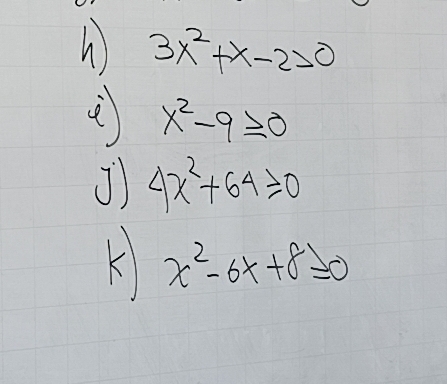 h) 3x²+x-2>0
i) x²-9≥0
j) 4x²+64≥0
k) x²-6x+8≥0